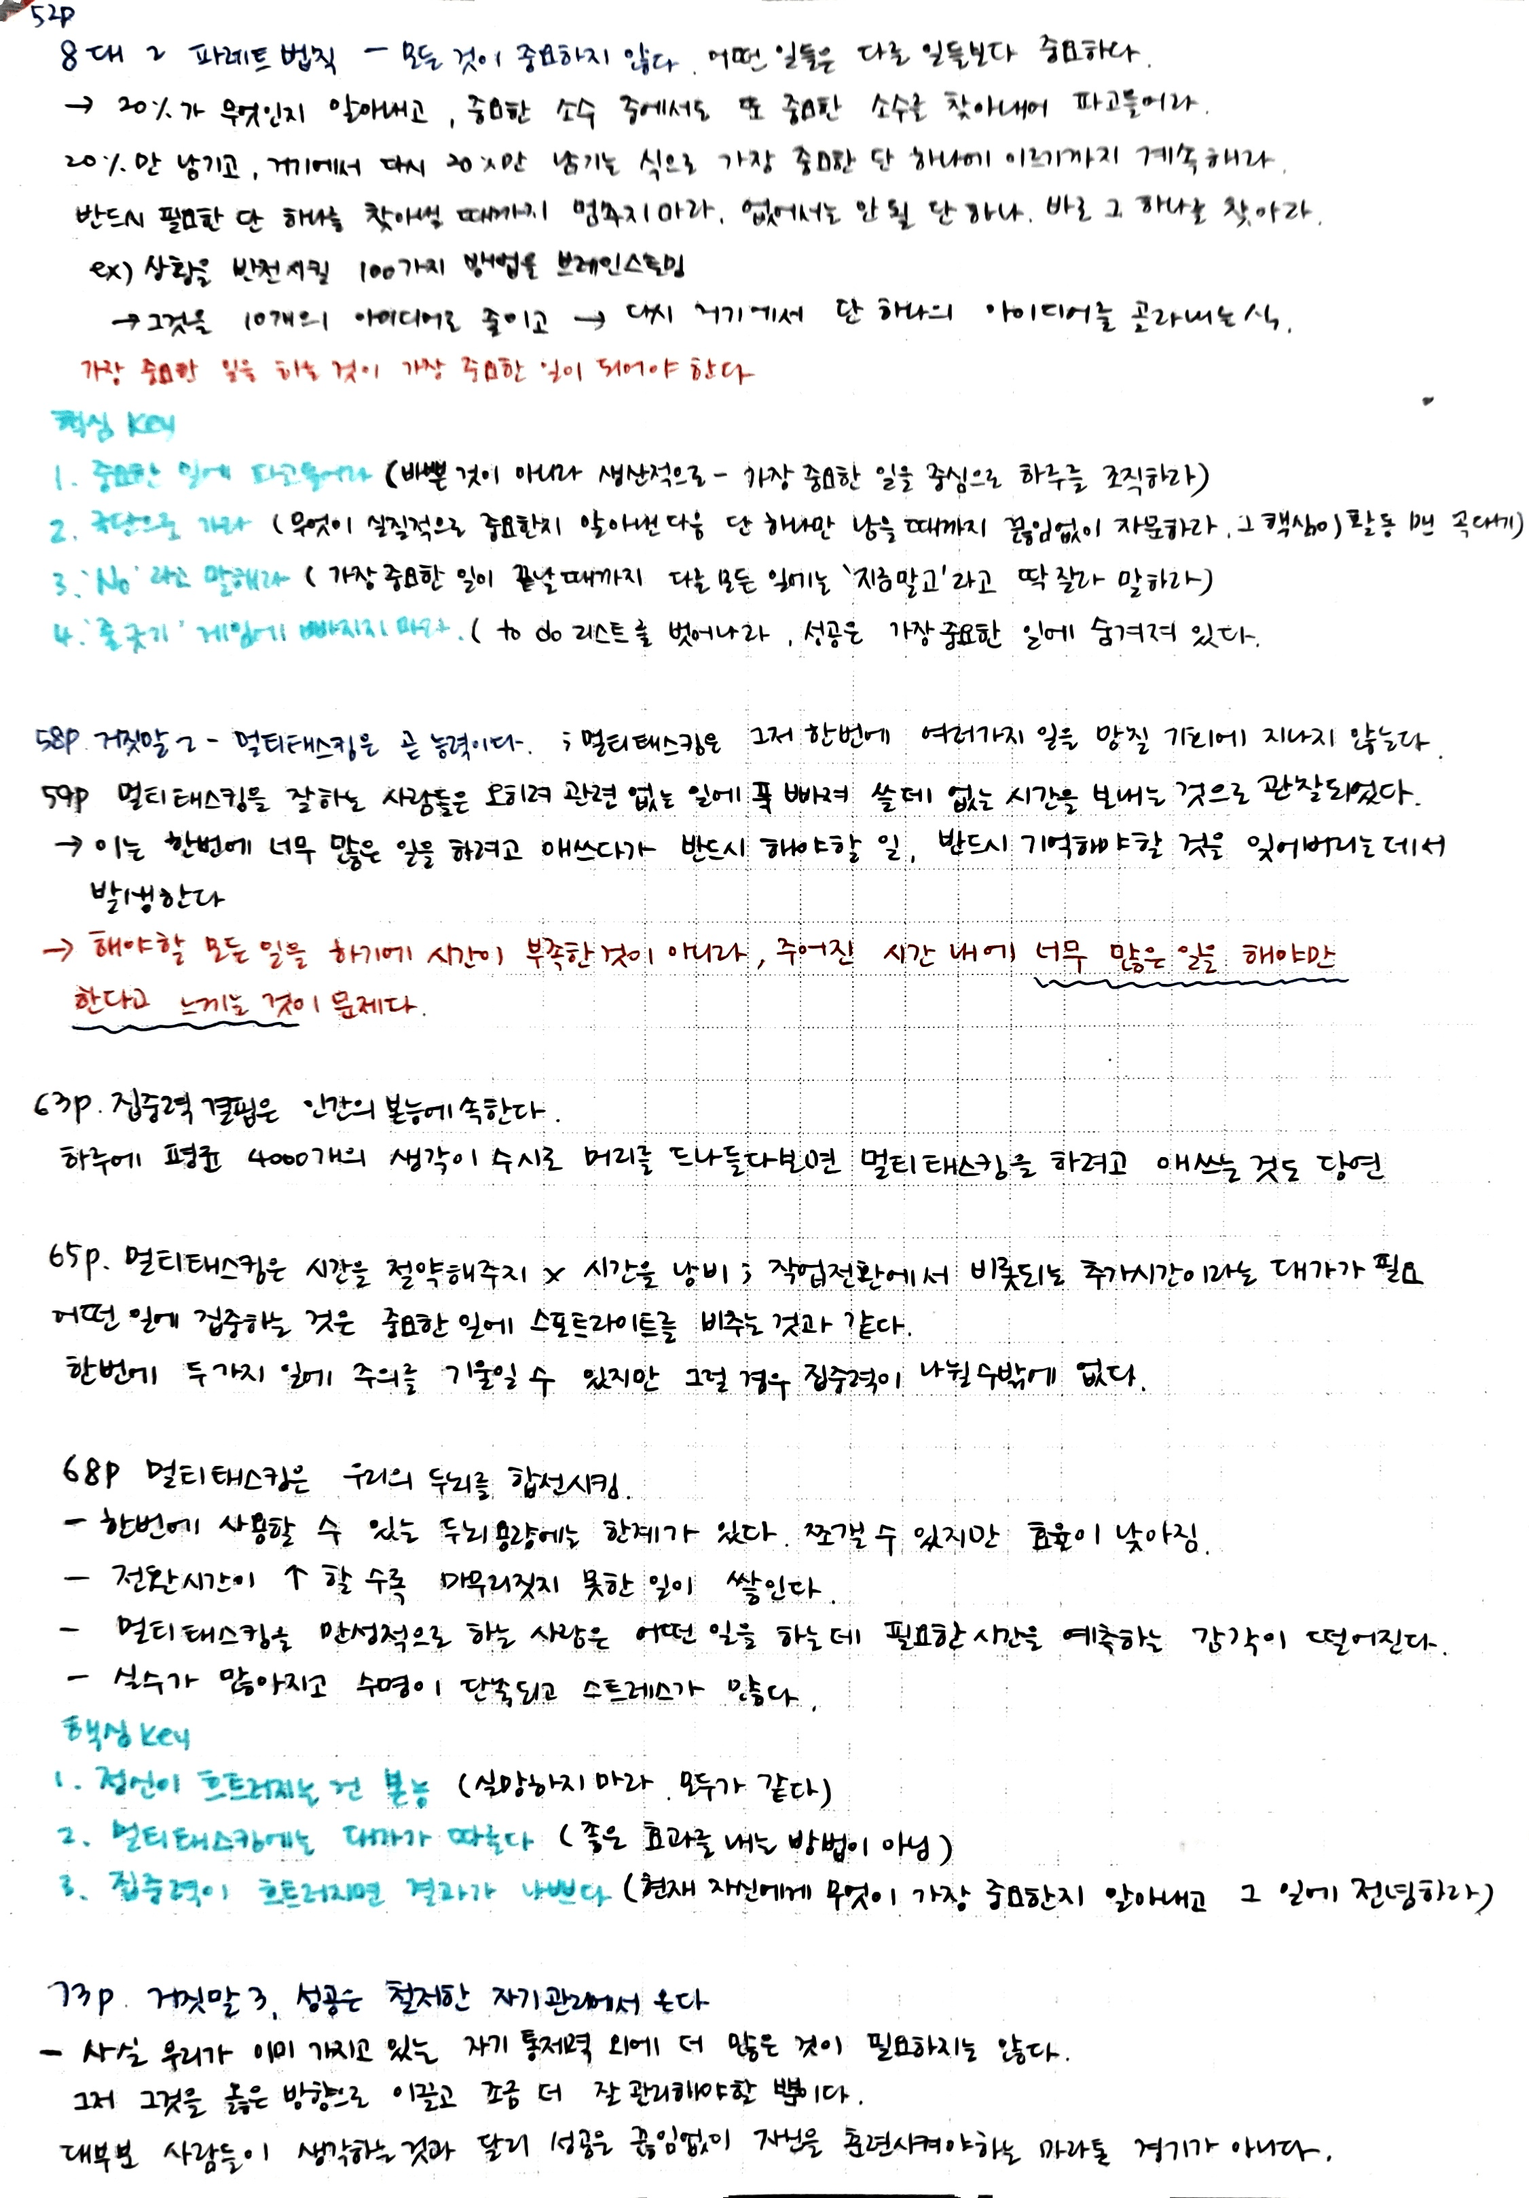 52p
8대 2 파레트법칙 - 모든 것이 중요하지 않다. 어떤 일들은 다른 일들보다 중요하다.
→ 20%가 무엇인지 알아내고, 중요한 소수 중에서도 또 중요한 소수를 찾아내어 파고들어라.
20%만 남기고, 거기에서 다시 20%만 남기는 식으로 가장 중요한 단 하나에 이르기까지 계속해라.
반드시 필요한 단 하나를 찾아낼 때까지 멈추지마라. 없어서는 안 될 단 하나. 바로 그 하나를 찾아라.
ex) 상황을 반전시킬 100가지 방법을 브레인스토밍
→ 그것을 10개의 아이디어로 줄이고 → 다시 거기에서 단 하나의 아이디어를 골라내는 식.
가장 중요한 일을 하는 것이 가장 중요한 일이 되어야 한다
핵심 Key
1. 중요한 일에 파고들어라 (바쁜 것이 아니라 생산적으로 - 가장 중요한 일을 중심으로 하루를 조직하라)
2. 극단으로 가라 (무엇이 실질적으로 중요한지 알아낸 다음 단 하나만 남을 때까지 끊임없이 자문하라. 그 핵심이 활동 맨 꼭대기)
3. 'No' 라고 말해라 (가장 중요한 일이 끝날 때까지 다른 모든 일에는 '지금말고'라고 딱 잘라 말하라)
4. '줄긋기' 게임에 빠지지 마라. (to do 리스트를 벗어나라, 성공은 가장 중요한 일에 숨겨져 있다.
58p. 거짓말 2 - 멀티태스킹은 곧 능력이다. ; 멀티태스킹은 그저 한번에 여러가지 일을 망칠 기회에 지나지 않는다.
59p 멀티태스킹을 잘하는 사람들은 오히려 관련 없는 일에 푹 빠져 쓸데 없는 시간을 보내는 것으로 관찰되었다.
→ 이는 한번에 너무 많은 일을 하려고 애쓰다가 반드시 해야할 일, 반드시 기억해야할 것을 잊어버리는데서
발생한다
→ 해야할 모든 일을 하기에 시간이 부족한 것이 아니라, 주어진 시간 내에 너무 많은 일을 해야만
한다고 느끼는 것이 문제다.
63p. 집중력 결핍은 인간의 본능에 속한다.
하루에 평균 4000개의 생각이 수시로 머리를 드나들다보면 멀티태스킹을 하려고 애쓰는 것도 당연
65p. 멀티태스킹은 시간을 절약해주지 x 시간을 낭비 ; 작업전환에서 비롯되는 추가시간이라는 대가가 필요
어떤 일에 집중하는 것은 중요한 일에 스포트라이트를 비추는 것과 같다.
한번에 두가지 일에 주의를 기울일 수 있지만 그럴 경우 집중력이 나뉠 수밖에 없다.
68p 멀티태스킹은 우리의 두뇌를 합선시킴.
- 한번에 사용할 수 있는 두뇌용량에는 한계가 있다. 쪼갤 수 있지만 효율이 낮아짐.
- 전환시간이 ↑ 할 수록 마무리짓지 못한 일이 쌓인다.
- 멀티태스킹을 만성적으로 하는 사람은 어떤 일을 하는데 필요한 시간을 예측하는 감각이 떨어진다.
- 실수가 많아지고 수명이 단축되고 스트레스가 많다.
핵심 Key
1. 정신이 흐트러지는 건 본능 (실망하지 마라. 모두가 같다)
2. 멀티태스킹에는 대가가 따른다 (좋은 효과를 내는 방법이 아님)
3. 집중력이 흐트러지면 결과가 나쁘다 (현재 자신에게 무엇이 가장 중요한지 알아내고 그 일에 전념하라)
73p. 거짓말 3. 성공은 철저한 자기관리에서 온다
- 사실 우리가 이미 가지고 있는 자기 통제력 외에 더 많은 것이 필요하지는 않다.
그저 그것을 옳은 방향으로 이끌고 조금 더 잘 관리해야할 뿐이다.
대부분 사람들이 생각하는 것과 달리 성공은 끊임없이 자신을 훈련시켜야하는 마라톤 경기가 아니다.